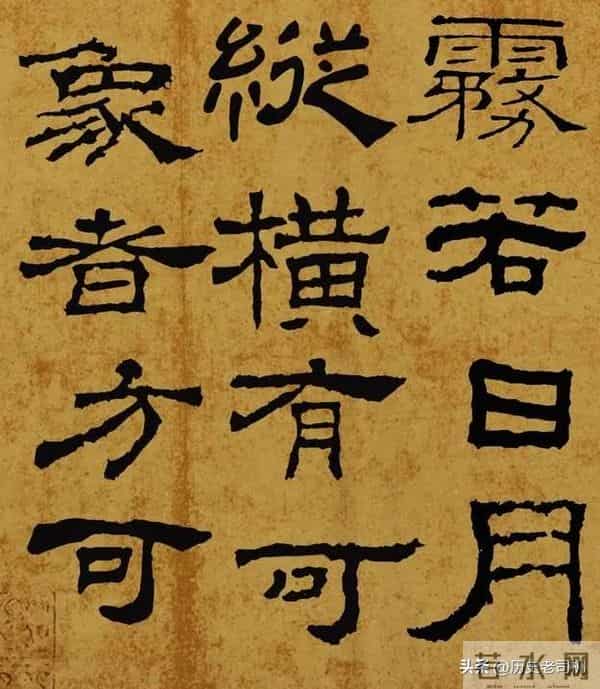 霧若日月
縱橫有可
象者方可
若水网
头条@历史老司机